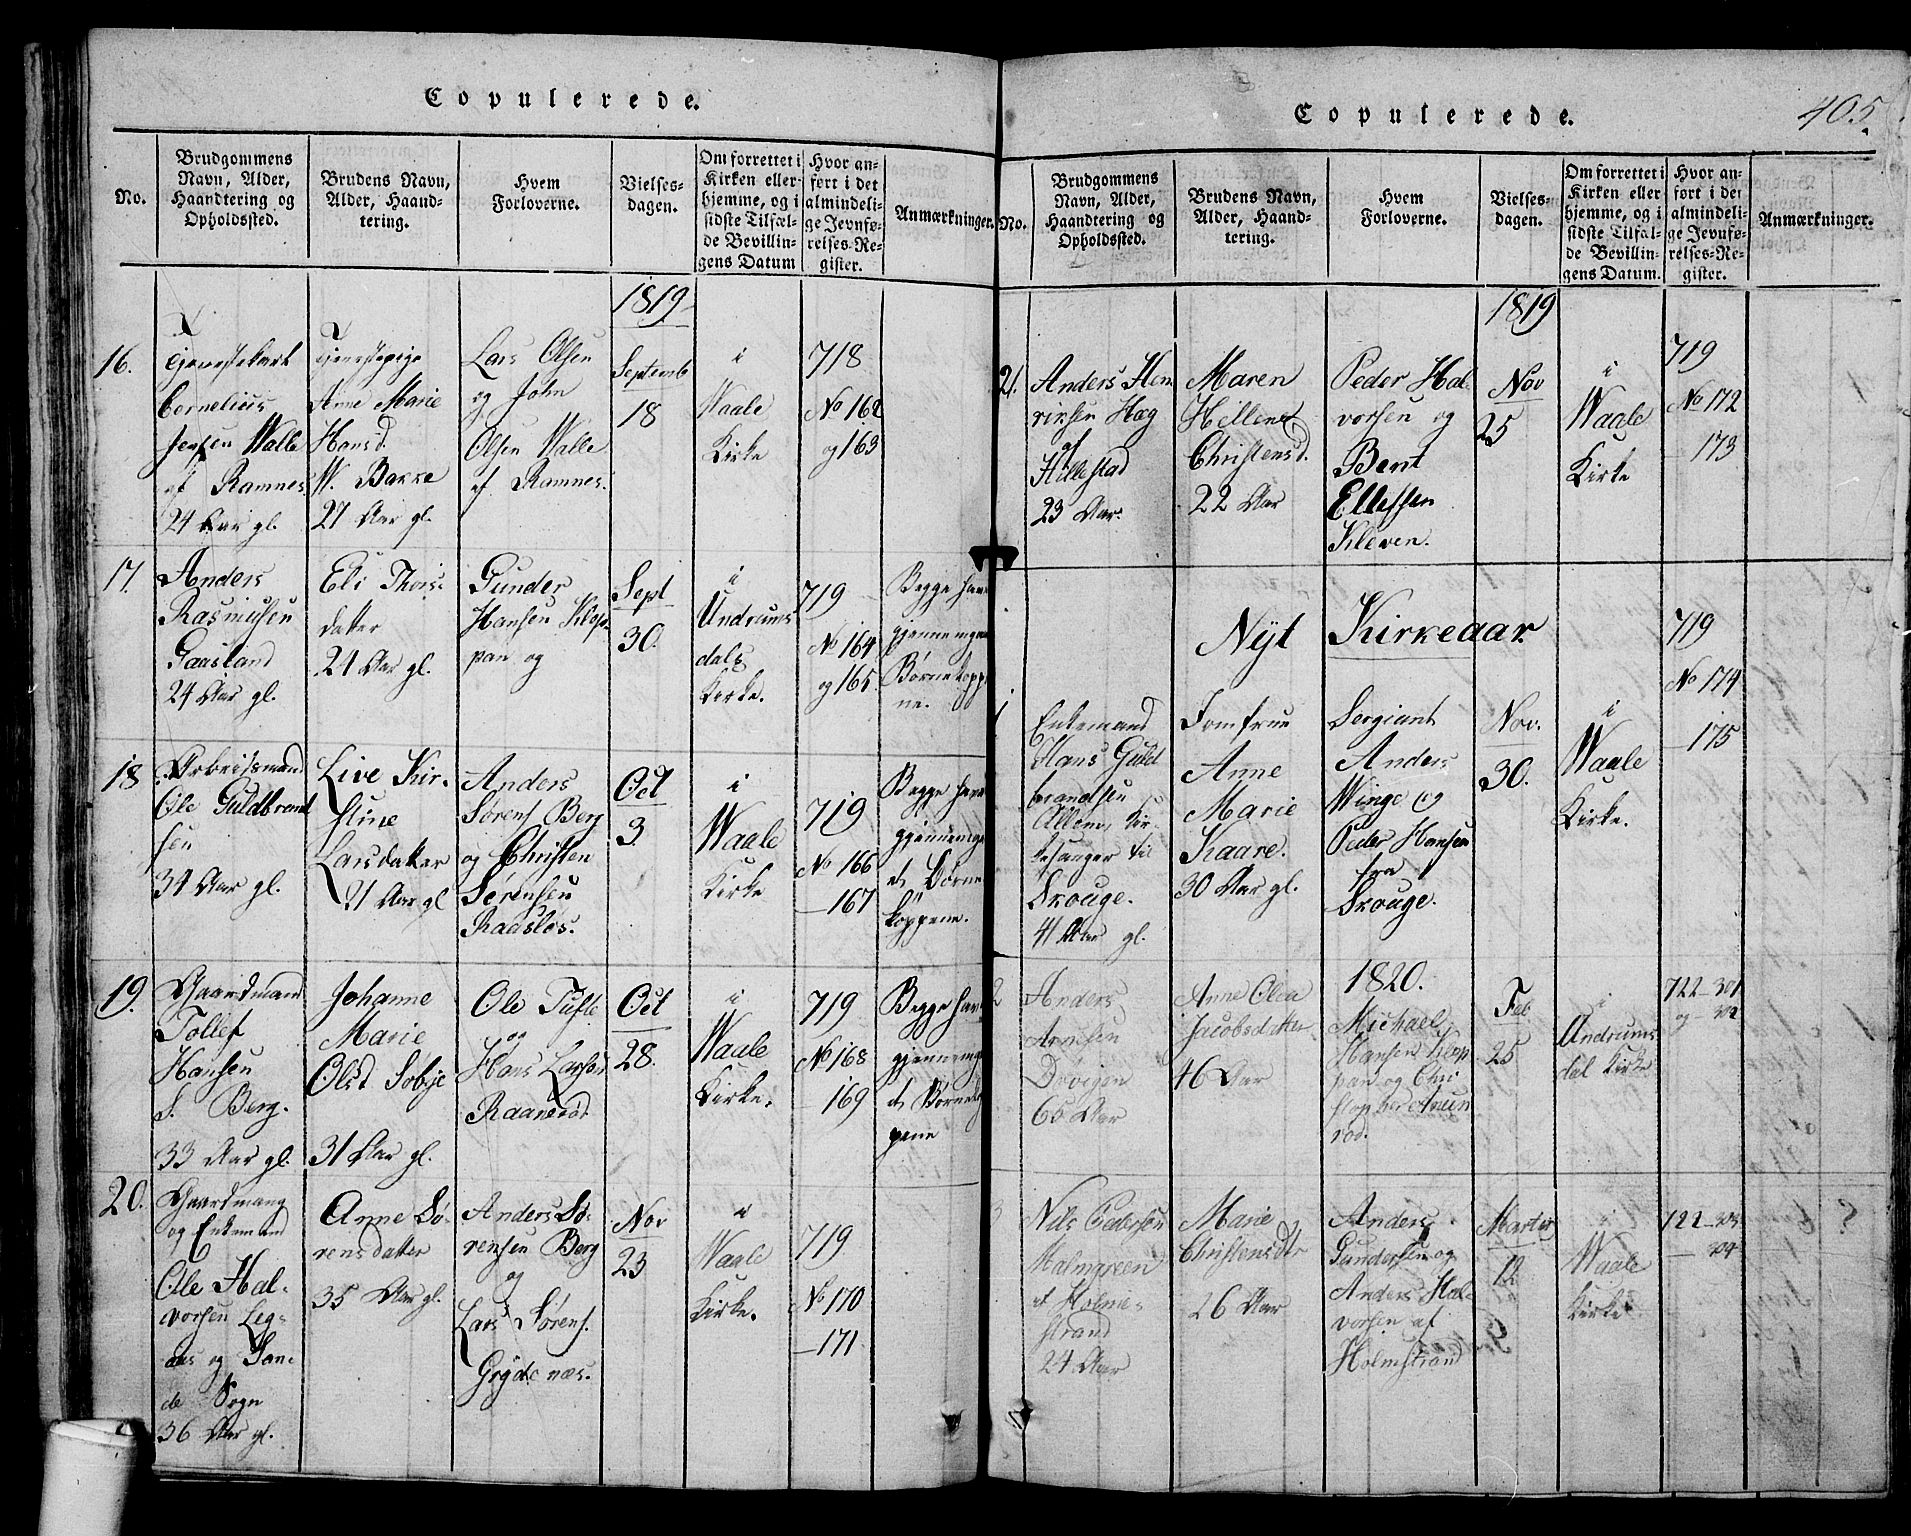 Copulerede.
No.
Brudgommens
Navn, Alder,
Haandtering og
Opholdssted.
Brudens Navn,
Alder, Haand-
tering.
Hvem
Forloverne.
Vielses-
dagen.
Om forrettet i
Kirken eller
hjemme, og i
sidste Tilfæl-
de Bevillin-
gens Datum
Hvor an-
ført i det
almindeli-
ge Jevnfø-
relses-Re-
gister.
Anmærkninger.
1819
16.
Tjenestekarl
Cornelius
Jensen Walle
af Ramnes
24 Aar gl.
Tjenestepige
Anne Marie
Hansd.
W. Bakke
27 Aar gl.
Lars Olsen
og John
Olsen Walle
af Ramnes.
Septemb
18
i
Waale
Kirke
718
No 162
og 163
17.
Anders
Rasmusen
Gaasland
24 Aar gl.
Eli Thors-
datter
21 Aar gl.
Gunder
Hansen Klop-
pan og
Sept
30.
i
Undrums
dals
Kirke.
719
No 164
og 165
Begge have
gjennemgaa
Børnekopp
ne.
18
Arbeidsmand
Ole Guldbrand
sen
31 Aar gl.
Live Kir-
stine
Larsdatter
21 Aar gl
Anders
Sørens Berg
og Christen
Sørensen
Raasløs.
Oct
3.
i
Waale
Kirke
719
No 166
— 167
Begge have
gjennemga
et Børne-
koppene.
19.
Gaardmand
Tollef
Hansen
S. Berg.
33 Aar gl.
Johanne
Marie
Olsd Søbye
31 Aar gl.
Ole Tufte
og
Hans Larsen
Raanerød.
Oct
28.
i
Waale
Kirke.
719
No 168
— 169
Begge hav
gjennemga
et Børneko
pene
20.
Gaardmand
og Enkemand
Ole Hal-
vorsen Leg-
aas og San-
de Sogn
36 Aar gl.
Anne Sø-
rensdatter
35 Aar gl.
Anders Sø-
rensen Berg
og
Lars Sørens.
Grydenæs.
Nov
23
i
Waale
Kirke.
719
No 170
— 171
Copulerede.
405
No.
Brudgommens
Navn, Alder,
Haandtering og
Opholdssted.
Brudens Navn,
Alder, Haand-
tering.
Hvem
Forloverne.
Vielses-
dagen.
Om forrettet i
Kirken eller
hjemme, og i
sidste Tilfæl-
de Bevillin-
gens Datum.
Hvor an-
ført i det
almindeli-
ge Jevnfø-
relses-Re-
gister.
Anmærkninger.
1819
21.
Anders Hen
riksen Hæg
af
Hillestad
23 Aar.
Maren
Hellene
Christensd.
22 Aar
Peder Hal
vorsen og
Bent
Ellefsen
Kleven.
Nov
25
i
Waale
Kirke
719
No 172
— 173
Nyt Kirkeaar
1
Enkemand
Hans Guld
brandsen
Kir-
kesanger til
Skouge.
41 Aar gl.
Jomfrue
Anne
Marie
Kaare.
30 Aar gl.
Sergiant
Anders
Winge og
Peder Hansen
fra
Skouge.
Nov.
30.
i
Waale
Kirke.
719
No 174
175
2
Anders
Arnesen
Døvigen
65 Aar
Anne Olea
Jacobsdatter
46 Aar
1820.
Michael
Hansen Klop
pan og Chri
stopher Aaun
rød.
Feb
25
i
Undrums
dal Kirke
722—301
og—302
3
Nils Pedersen
Malmgreen
af Holme-
strand
24 Aar
Marie
Christensdtr
26 Aar
Anders
Gundersen og
Anders Hal-
vorsen af
Holmstrand
Marter
12
i
Waale
Kirke
722—303
— 304